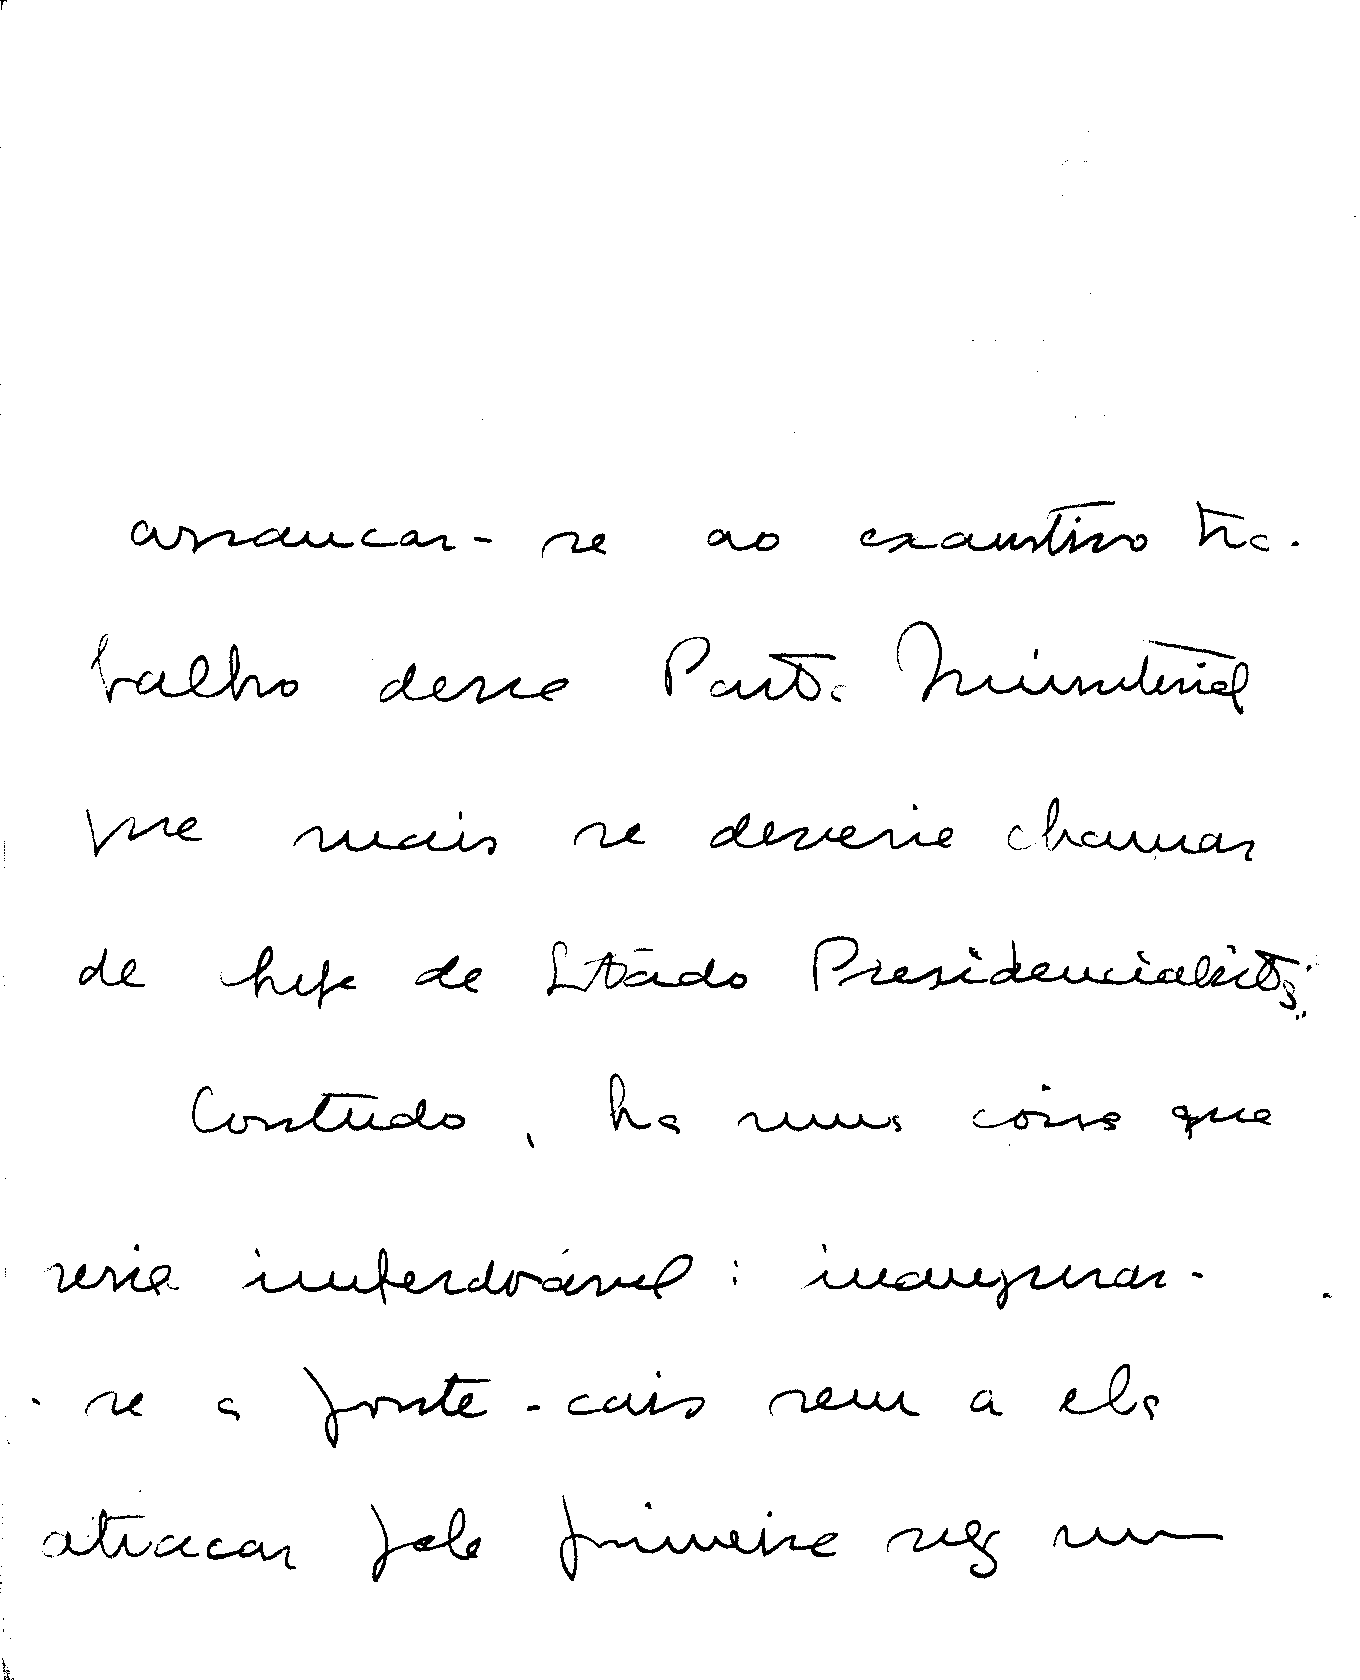 arrancar-se ao exaustivo tra-
balho dessa Pasta Ministerial
que mais se deveria chamar
de chefe de Estado Presidencialista.
Contudo, ha uma coisa que
seria imperdoável: inaugurar-
-se a ponte-cais sem a ela
atracar pela primeira vez um